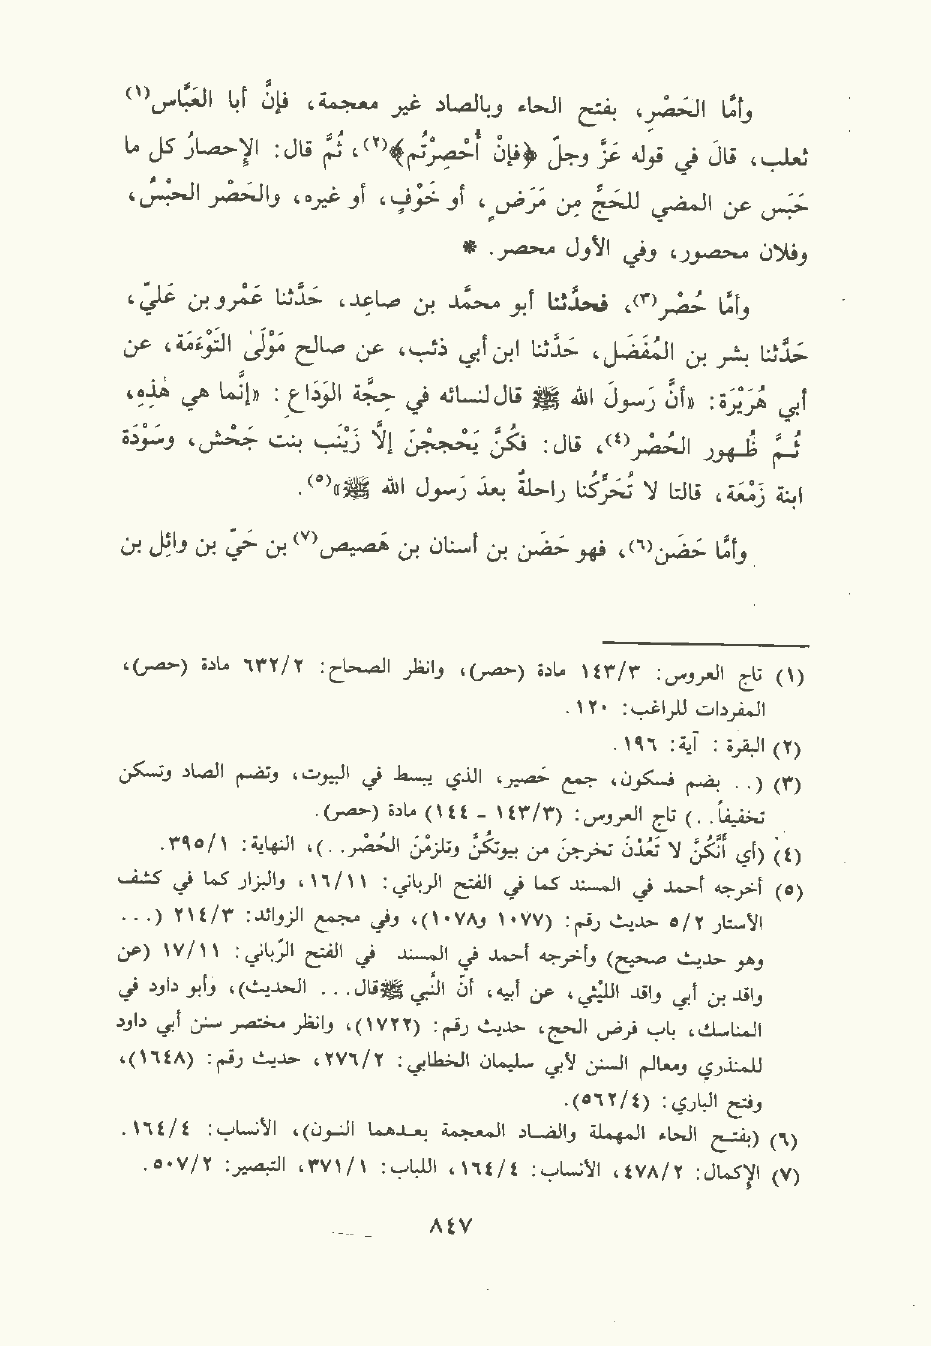 وأمَّا الحَصْر، بفتح الحاء وبالصاد غير معجمة، فإنَّ أبا العَبَّاس(١)
ثعلب، قالَ في قوله عَزَّ وجلّ ﴿فإنْ أُحْصِرْتُم﴾(٢)، ثُمَّ قال: الإحصارُ كل ما
حَبَس عن المضي للحَجِّ مِن مَرَضٍ، أو خَوْفٍ، أو غيره، والحَصْر الحبْسُ،
وفلان محصور، وفي الأول محصر. *
وأمَّا حُصْر(٣)، فحدَّثنا أبو محمد بن صاعِد، حَدَّثنا عَمْرو بن عَليّ،
حَدَّثنا بشر بن المُفَضَل، حَدَّثنا ابن أبي ذئب، عن صالح مَوْلَىٰ التَوْءَمَة، عن
أبي هُرَيْرَة: «أنَّ رسولَ الله ﷺ قال لنسائه في حجَّة الوَدَاع: «إنَّما هي هٰذِهِ،
ثُـمَّ ظُـهور الحُصْر(٤)، قال: فكُنَّ يَحْججْنَ إلاَّ زَيْنَب بنت جَحْش، وسَوْدَة
ابنة زَمْعَة، قالتا لا تُحَرِّكُنا راحلةٌ بعدَ رَسول الله ﷺ»(٥).
وأمَّا حَضَن(٦)، فهو حَضَن بن أسنان بن هَصيص(٧) بن حَيّ بن وائِل بن
(١) تاج العروس: ١٤٣/٣ مادة (حصر)، وانظر الصحاح: ٦٣٢/٢ مادة (حصر)،
المفردات للراغب: ١٢٠.
(٢) البقرة : آية: ١٩٦.
(٣) (.. بضم فسكون، جمع حَصير، الذي يبسط في البيوت، وتضم الصاد وتسكن
تخفيفاً..) تاج العروس: (١٤٣/٣ - ١٤٤) مادة (حصر).
(٤) (أي أَنَّكُنَّ لا تَعُدْنَ تخرجنَ من بيوتكُنَّ وتلزمْنَ الحُصْر..)، النهاية: ٣٩٥/١.
(٥) أخرجه أحمد في المسند كما في الفتح الرباني: ١٦/١١، والبزار كما في كشف
الأستار ٥/٢ حديث رقم: (١٠٧٧ و١٠٧٨)، وفي مجمع الزوائد: ٢١٤/٣ (...
وهو حديث صحيح) وأخرجه أحمد في المسند في الفتح الرّباني: ١٧/١١ (عن
واقد بن أبي واقد الليْثي، عن أبيه، أنّ النَّبي ﷺ قال... الحديث)، وأبو داود في
المناسك، باب فرض الحج، حديث رقم: (١٧٢٢)، وانظر مختصر سنن أبي داود
للمنذري ومعالم السنن لأبي سليمان الخطابي: ٢٧٦/٢، حديث رقم: (١٦٤٨)،
وفتح الباري: (٥٦٢/٤).
(٦) (بفتـح الحاء المهملة والضاد المعجمة بعـدهمـا النـون)، الأنساب: ١٦٤/٤.
(٧) الإكمال: ٤٧٨/٢، الأنساب: ١٦٤/٤، اللباب: ٣٧١/١، التبصير: ٥٠٧/٢.
٨٤٧